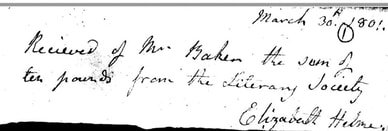 March 30th 1801.
①
Recieved of Mr Baker the sum of
ten pounds from the Literary Society
Elizabeth Helme.